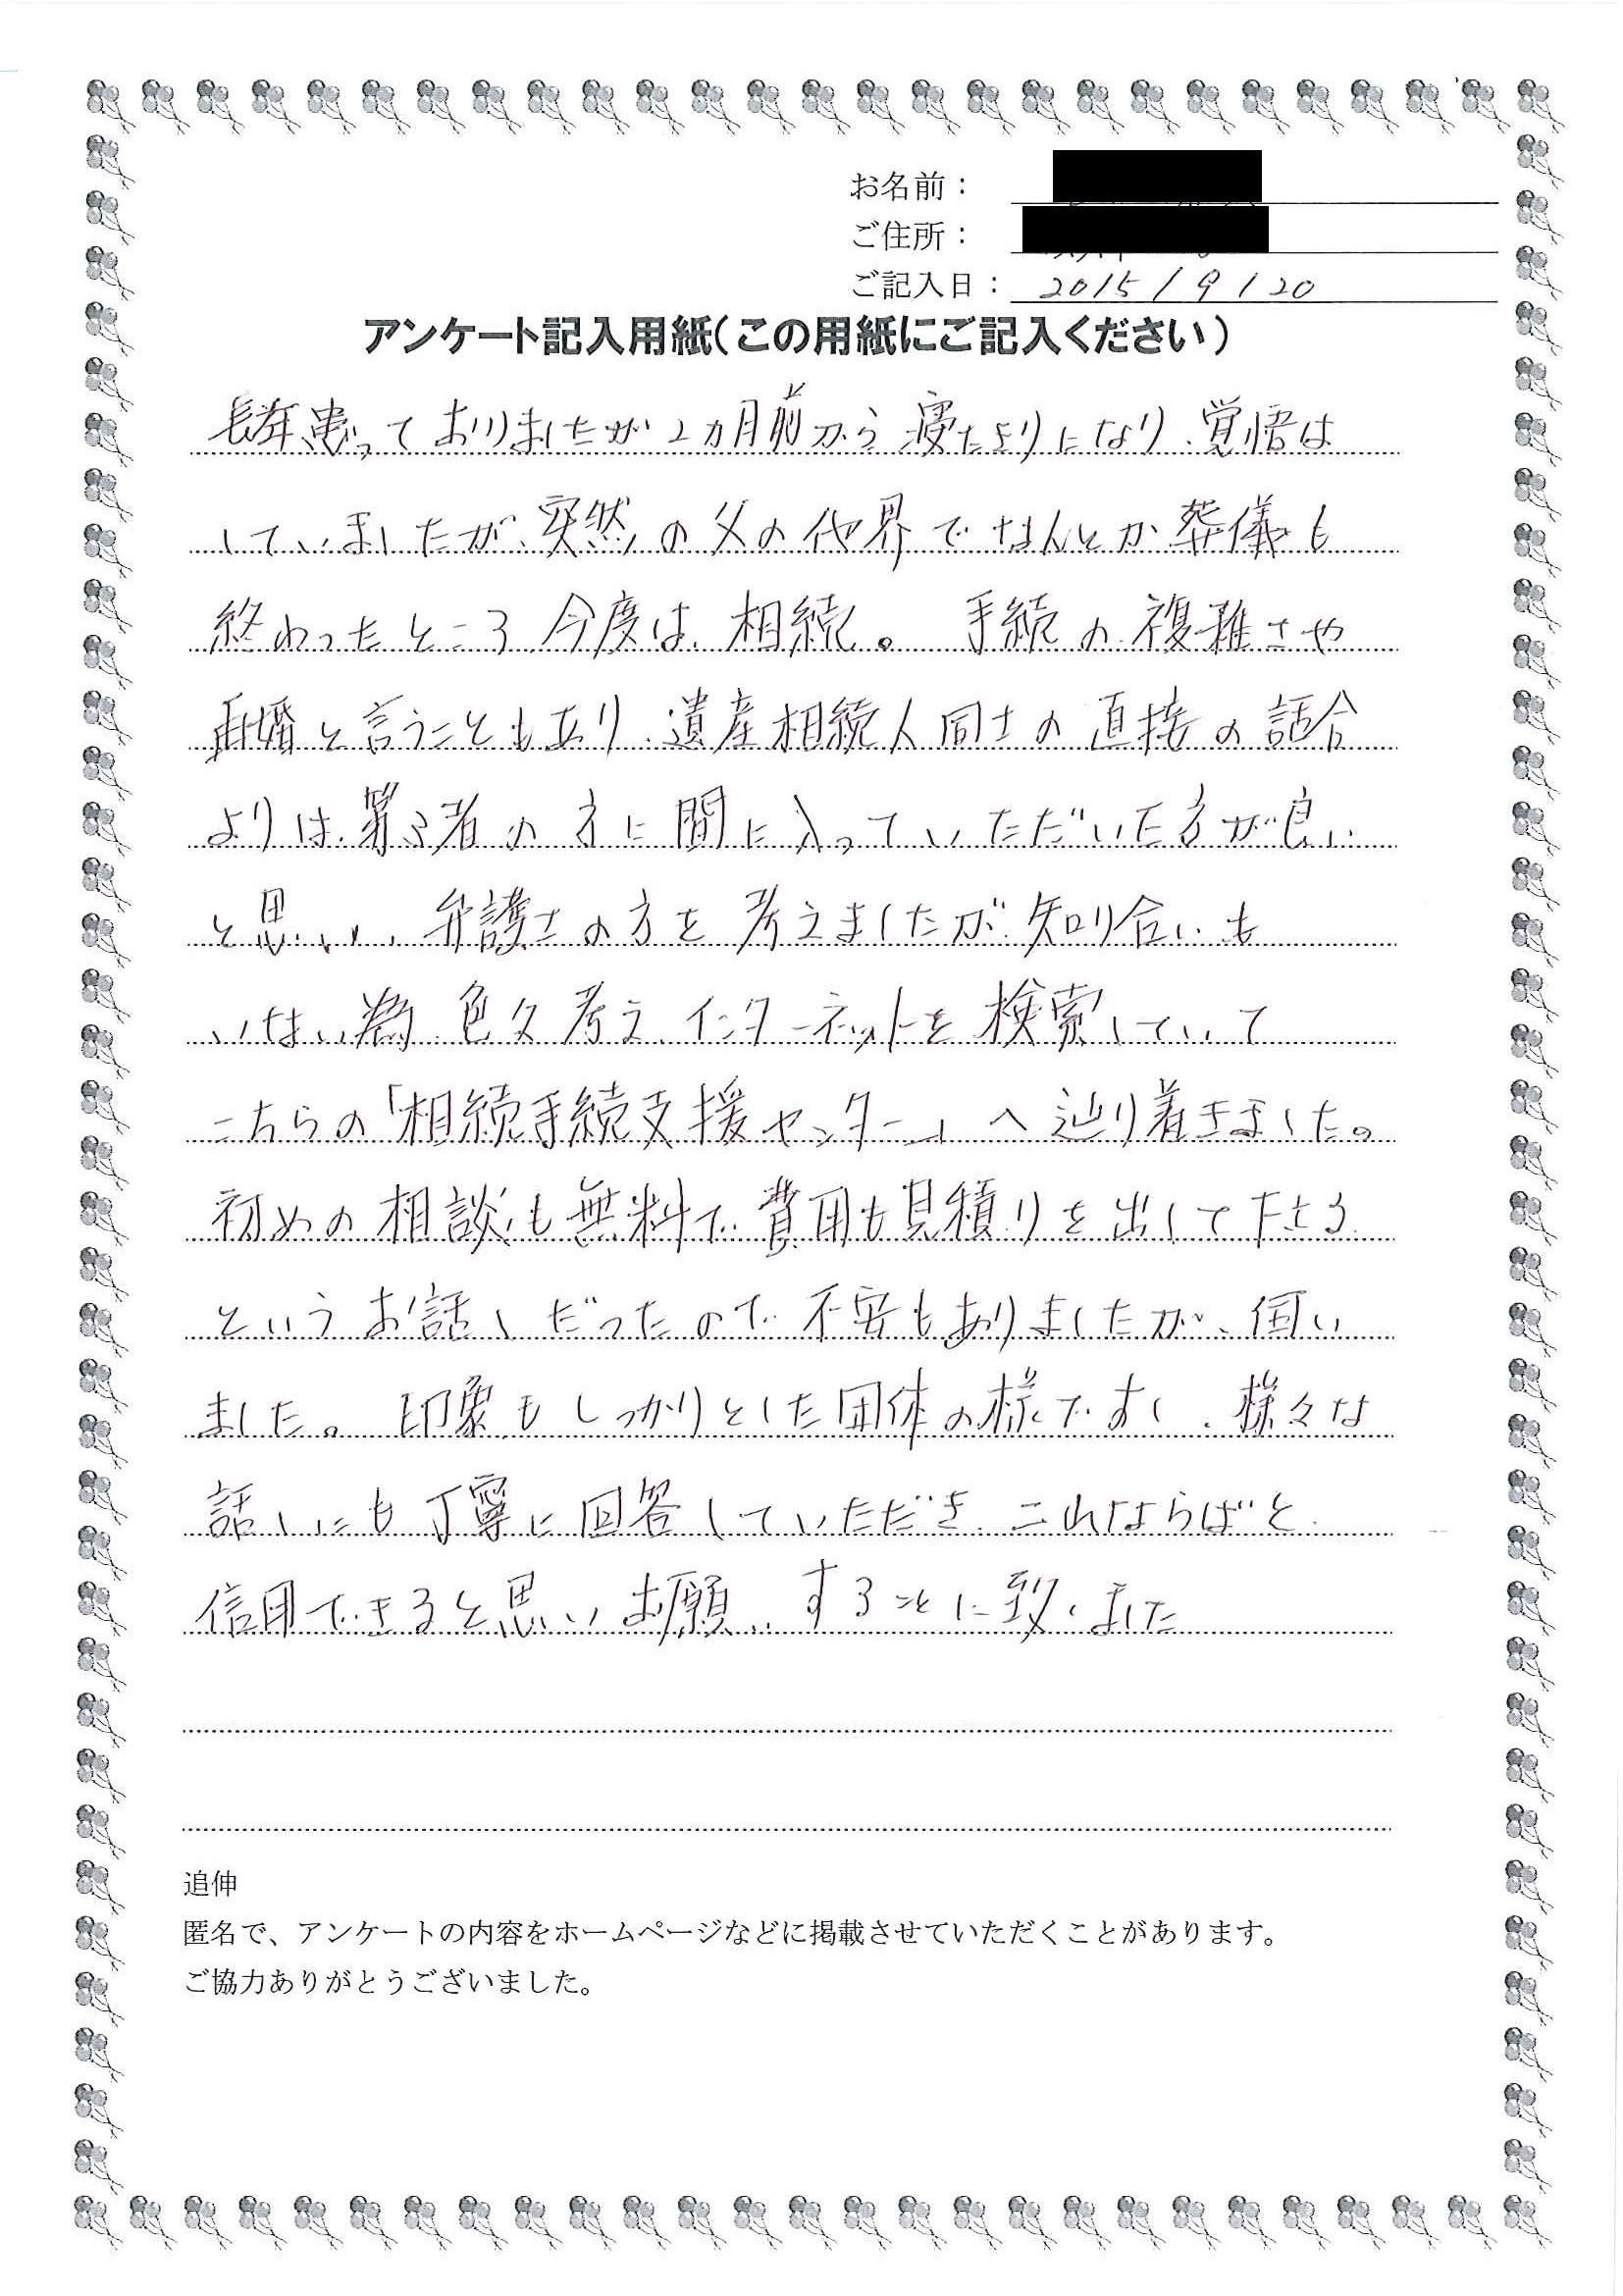 お名前：
ご住所：
ご記入日： 2015/9/20
アンケート記入用紙（この用紙にご記入ください）
長年患っておりましたが2ヵ月前から寝たきりになり、覚悟は
していましたが、突然の父の他界でなんとか葬儀も
終わったところ今度は、相続。手続の複雑さや
再婚と言うこともあり、遺産相続人同士の直接の話合
よりは、第3者の方に間に入っていただいた方が良い
と思い、弁護士の方を考えましたが知り合いも
いない為、色々考え、インターネットを検索していて
こちらの「相続手続支援センター」へ辿り着きました。
初めの相談も無料で費用も見積りを出して下さる
というお話しだったので不安もありましたが、伺い
ました。印象もしっかりとした団体の様ですし、様々な
話しにも丁寧に回答していただき、これならばと
信用できると思いお願いすることに致しました
追伸
匿名で、アンケートの内容をホームページなどに掲載させていただくことがあります。
ご協力ありがとうございました。